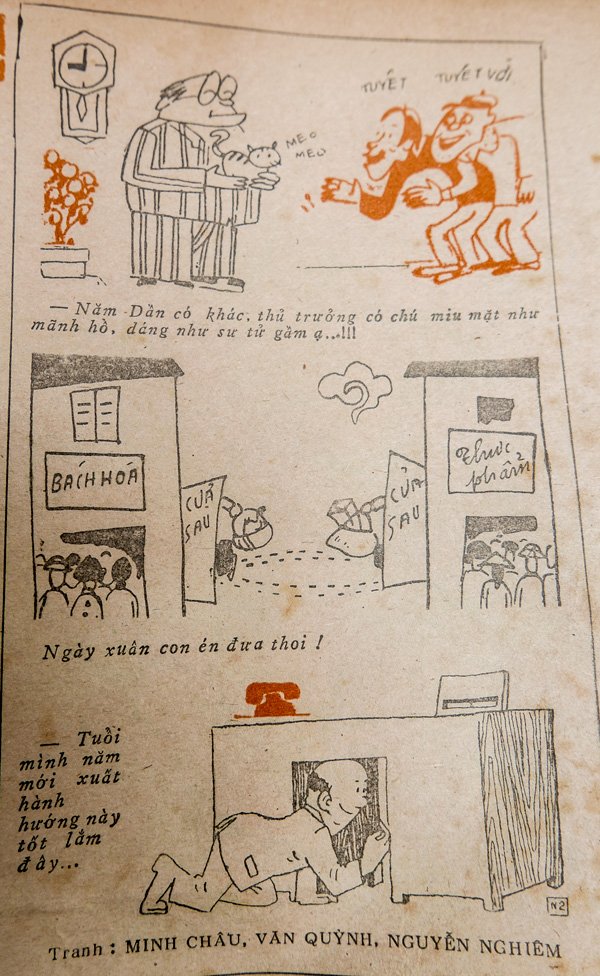 TUYẾT TUYẾT VỜI
MEO
MEO
— Năm Dần có khác, thủ trưởng có chú miu mặt như
mãnh hổ, dáng như sư tử gầm ạ...!!!
BÁCH HOÁ
CỬA
SAU
CỬA
SAU
Thực
phẩm
Ngày xuân con én đưa thoi !
— Tuổi
mình năm
mới xuất
hành
hướng này
tốt lắm
đây...
N2
Tranh : MINH CHÂU, VĂN QUỲNH, NGUYỄN NGHIÊM